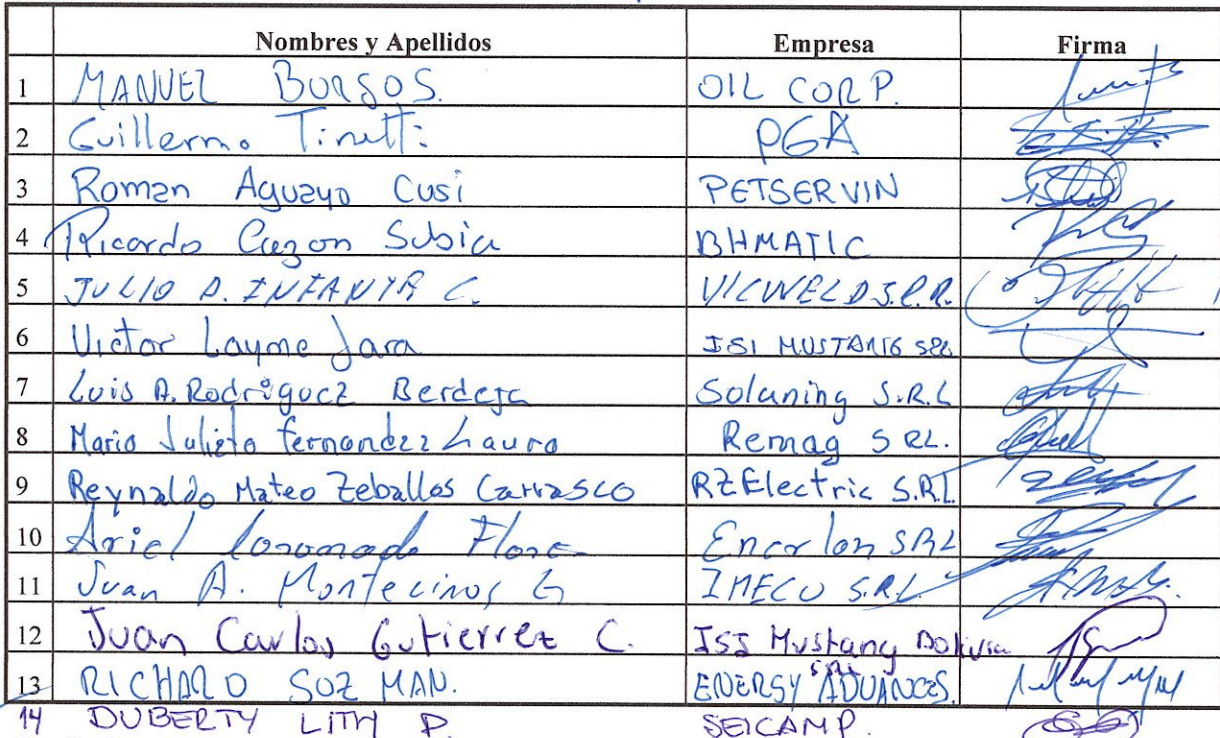 Nombres y Apellidos Empresa Firma
1 MANUEL BURGOS. OIL CORP.
2 Guillermo Tinetti PGA
3 Roman Aguayo Cusi PETSERVIN
4 Ricardo Cazon Subia BHMATIC
5 JULIO D. INFANTA C. VICWELD S.R.
6 Victor Layme Jara ISI MUSTANG SRL
7 Luis A. Rodriguez Berdeja Soluning S.R.L
8 Mario Julieto fernandez Lauro Remag SRL.
9 Reynaldo Mateo Zeballos Carrasco RZElectric S.R.L
10 Ariel Coronado Flores SRL
11 Juan A. Montecinos G IMECO S.R.L
12 Juan Carlos Gutierrez C. ISI Mustang Bolivia
SRL
13 RICHARD SOZ MAN. ENERGY ADVANCES.
14 DUBERTY P. SEICAMP.